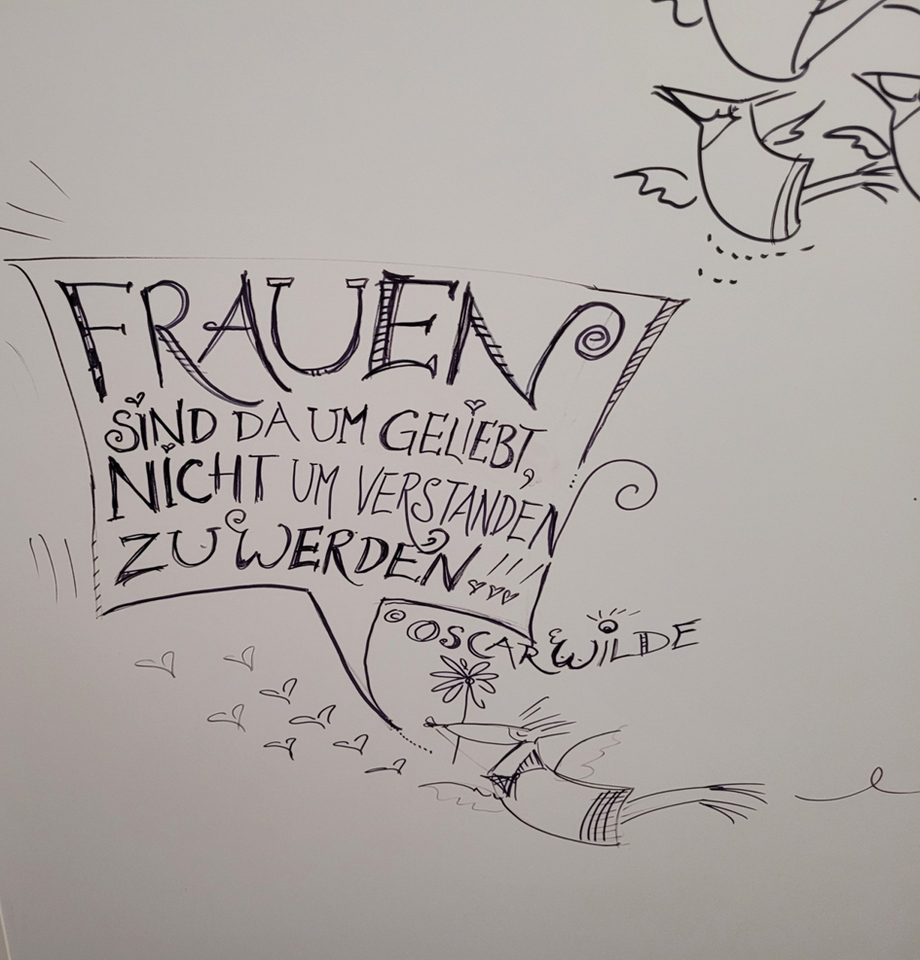 FRAUEN
SIND DA UM GELIEBT,
NICHT UM VERSTANDEN
ZU WERDEN!!!
© OSCAR WILDE